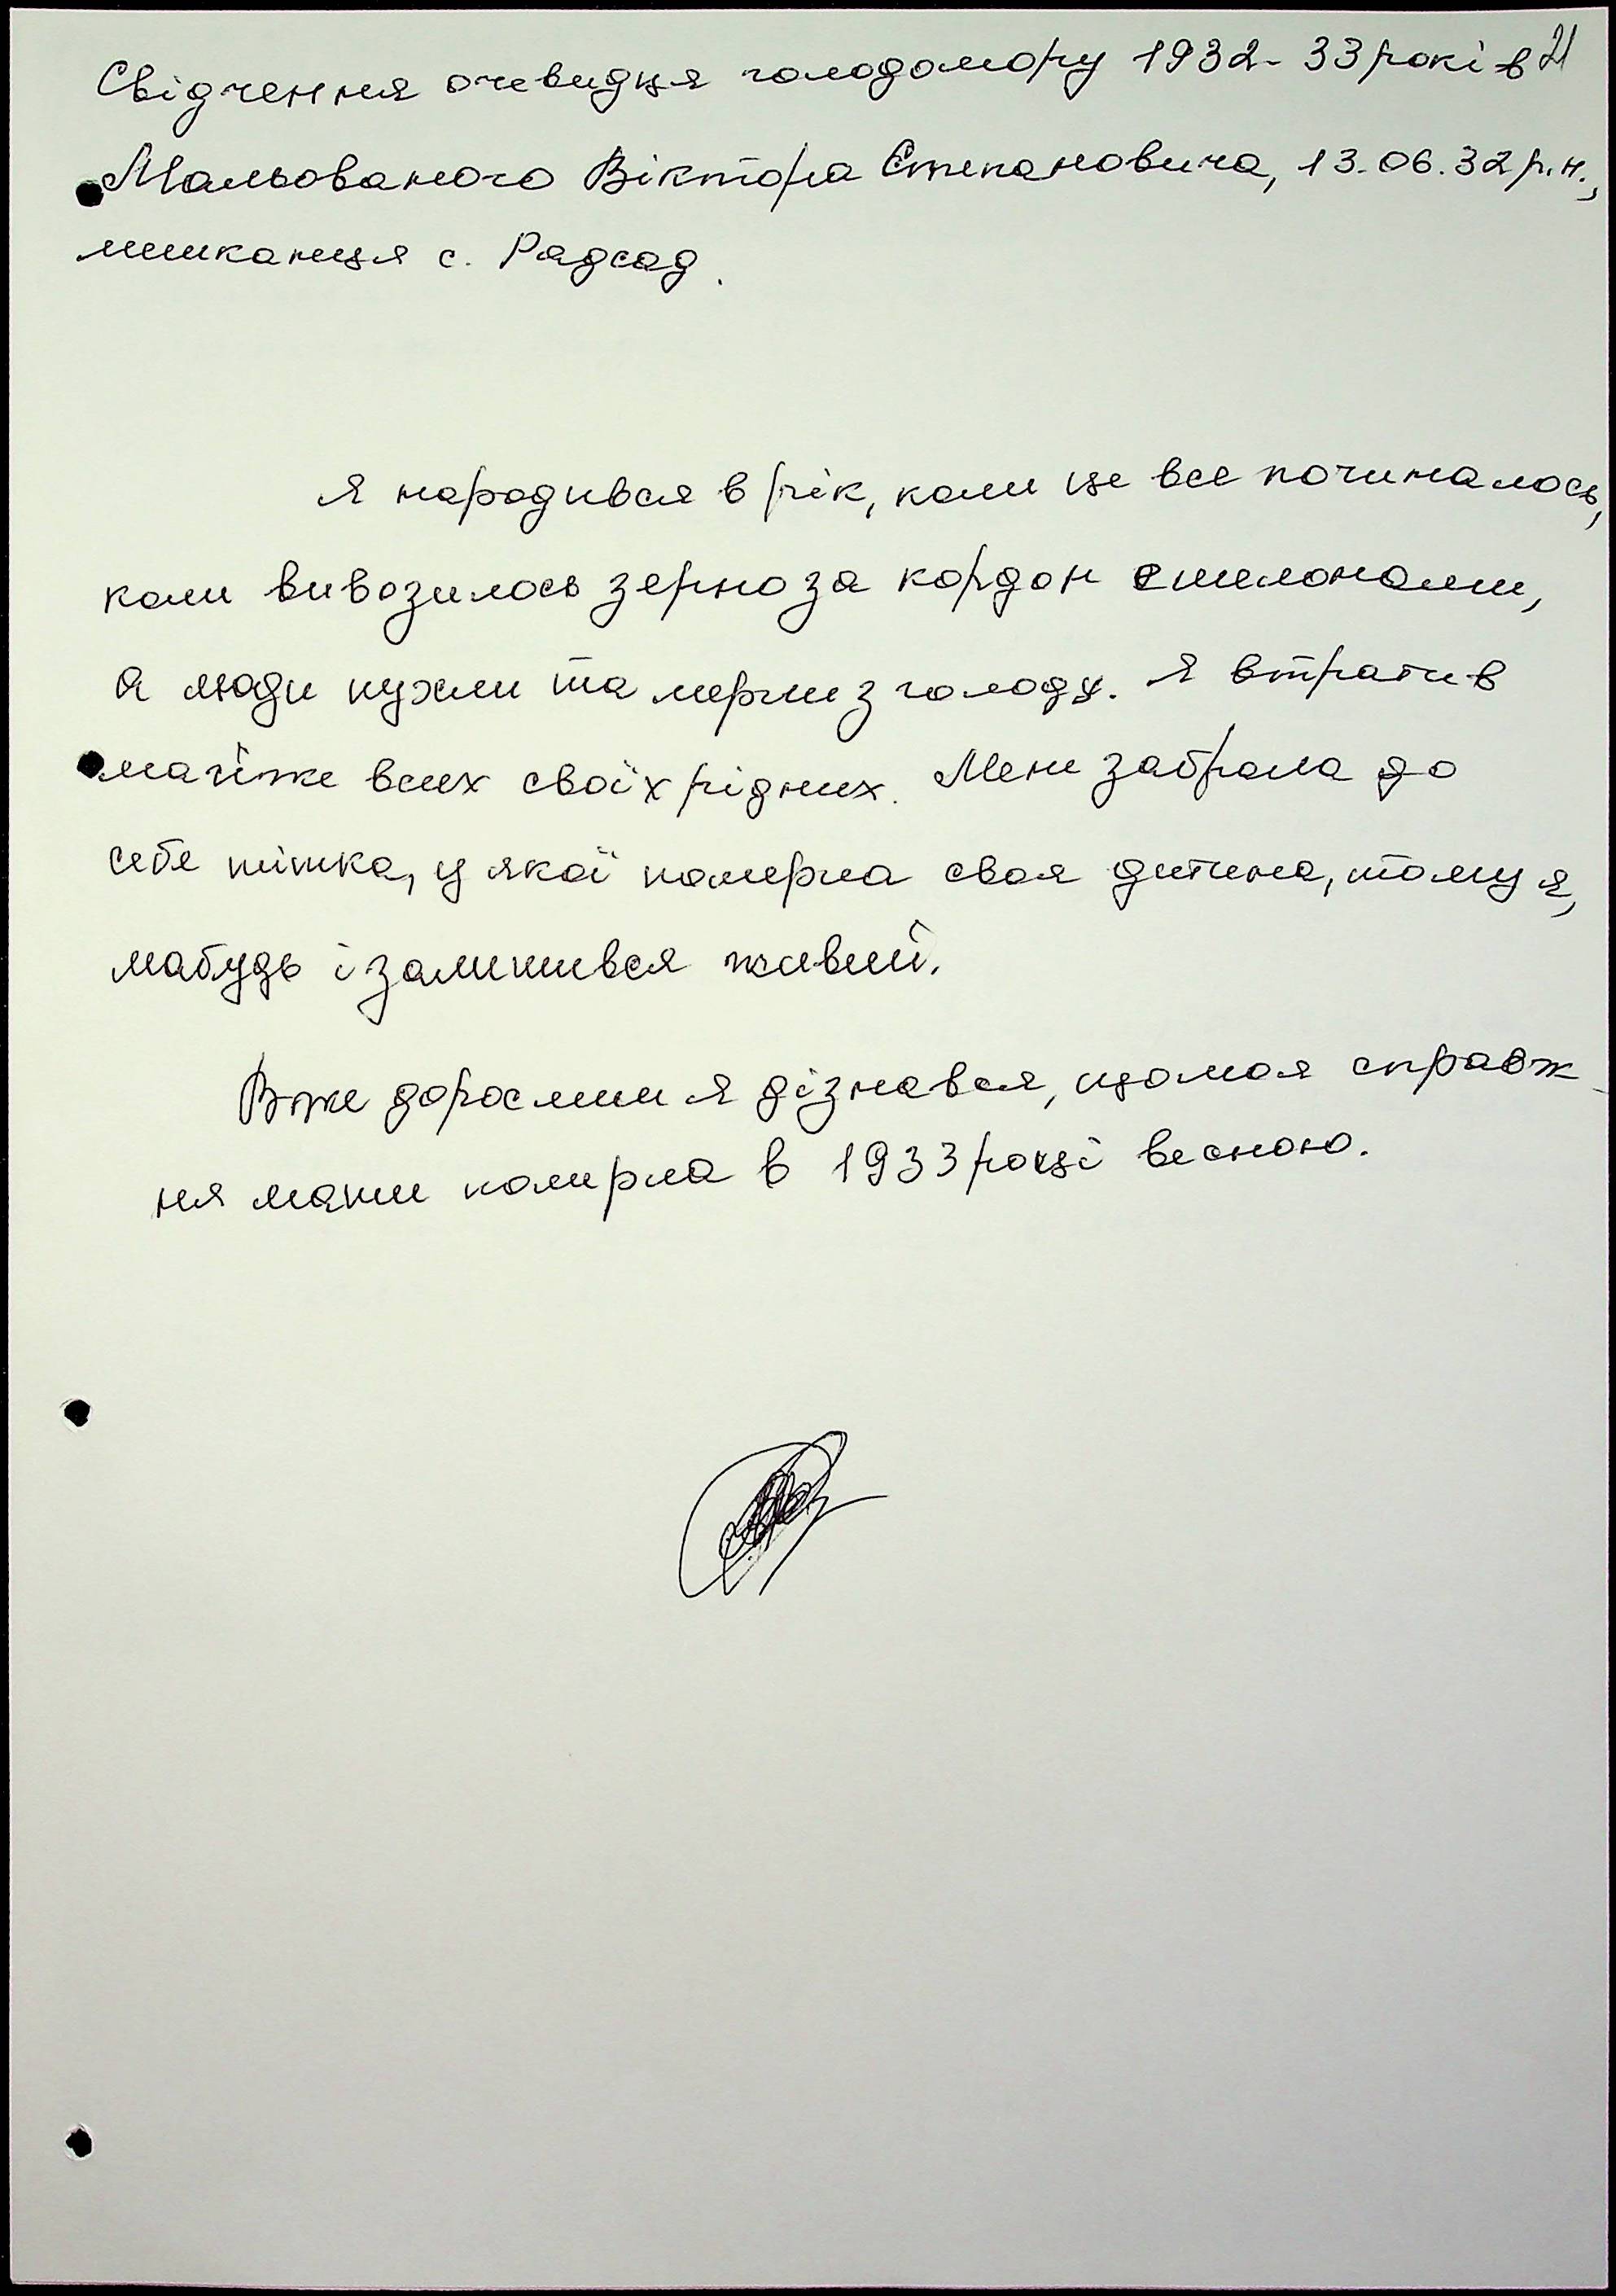 Свідчення очевидця голодомору 1932-33 років 21
Мальованого Віктора Степановича, 13.06.32 р.н.,
мешканця с. Радсад.
Я народився в рік, коли це все починалось,
коли вивозилось зерно за кордон ешелонами,
а люди пухли та мерли з голоду. Я втратив
майже всих своїх рідних. Мене забрала до
себе тітка, у якої померла своя дитина, тому я,
мабудь і залишився живий.
Вже дорослим я дізнався, що моя справж-
ня мати померла в 1933 році весною.